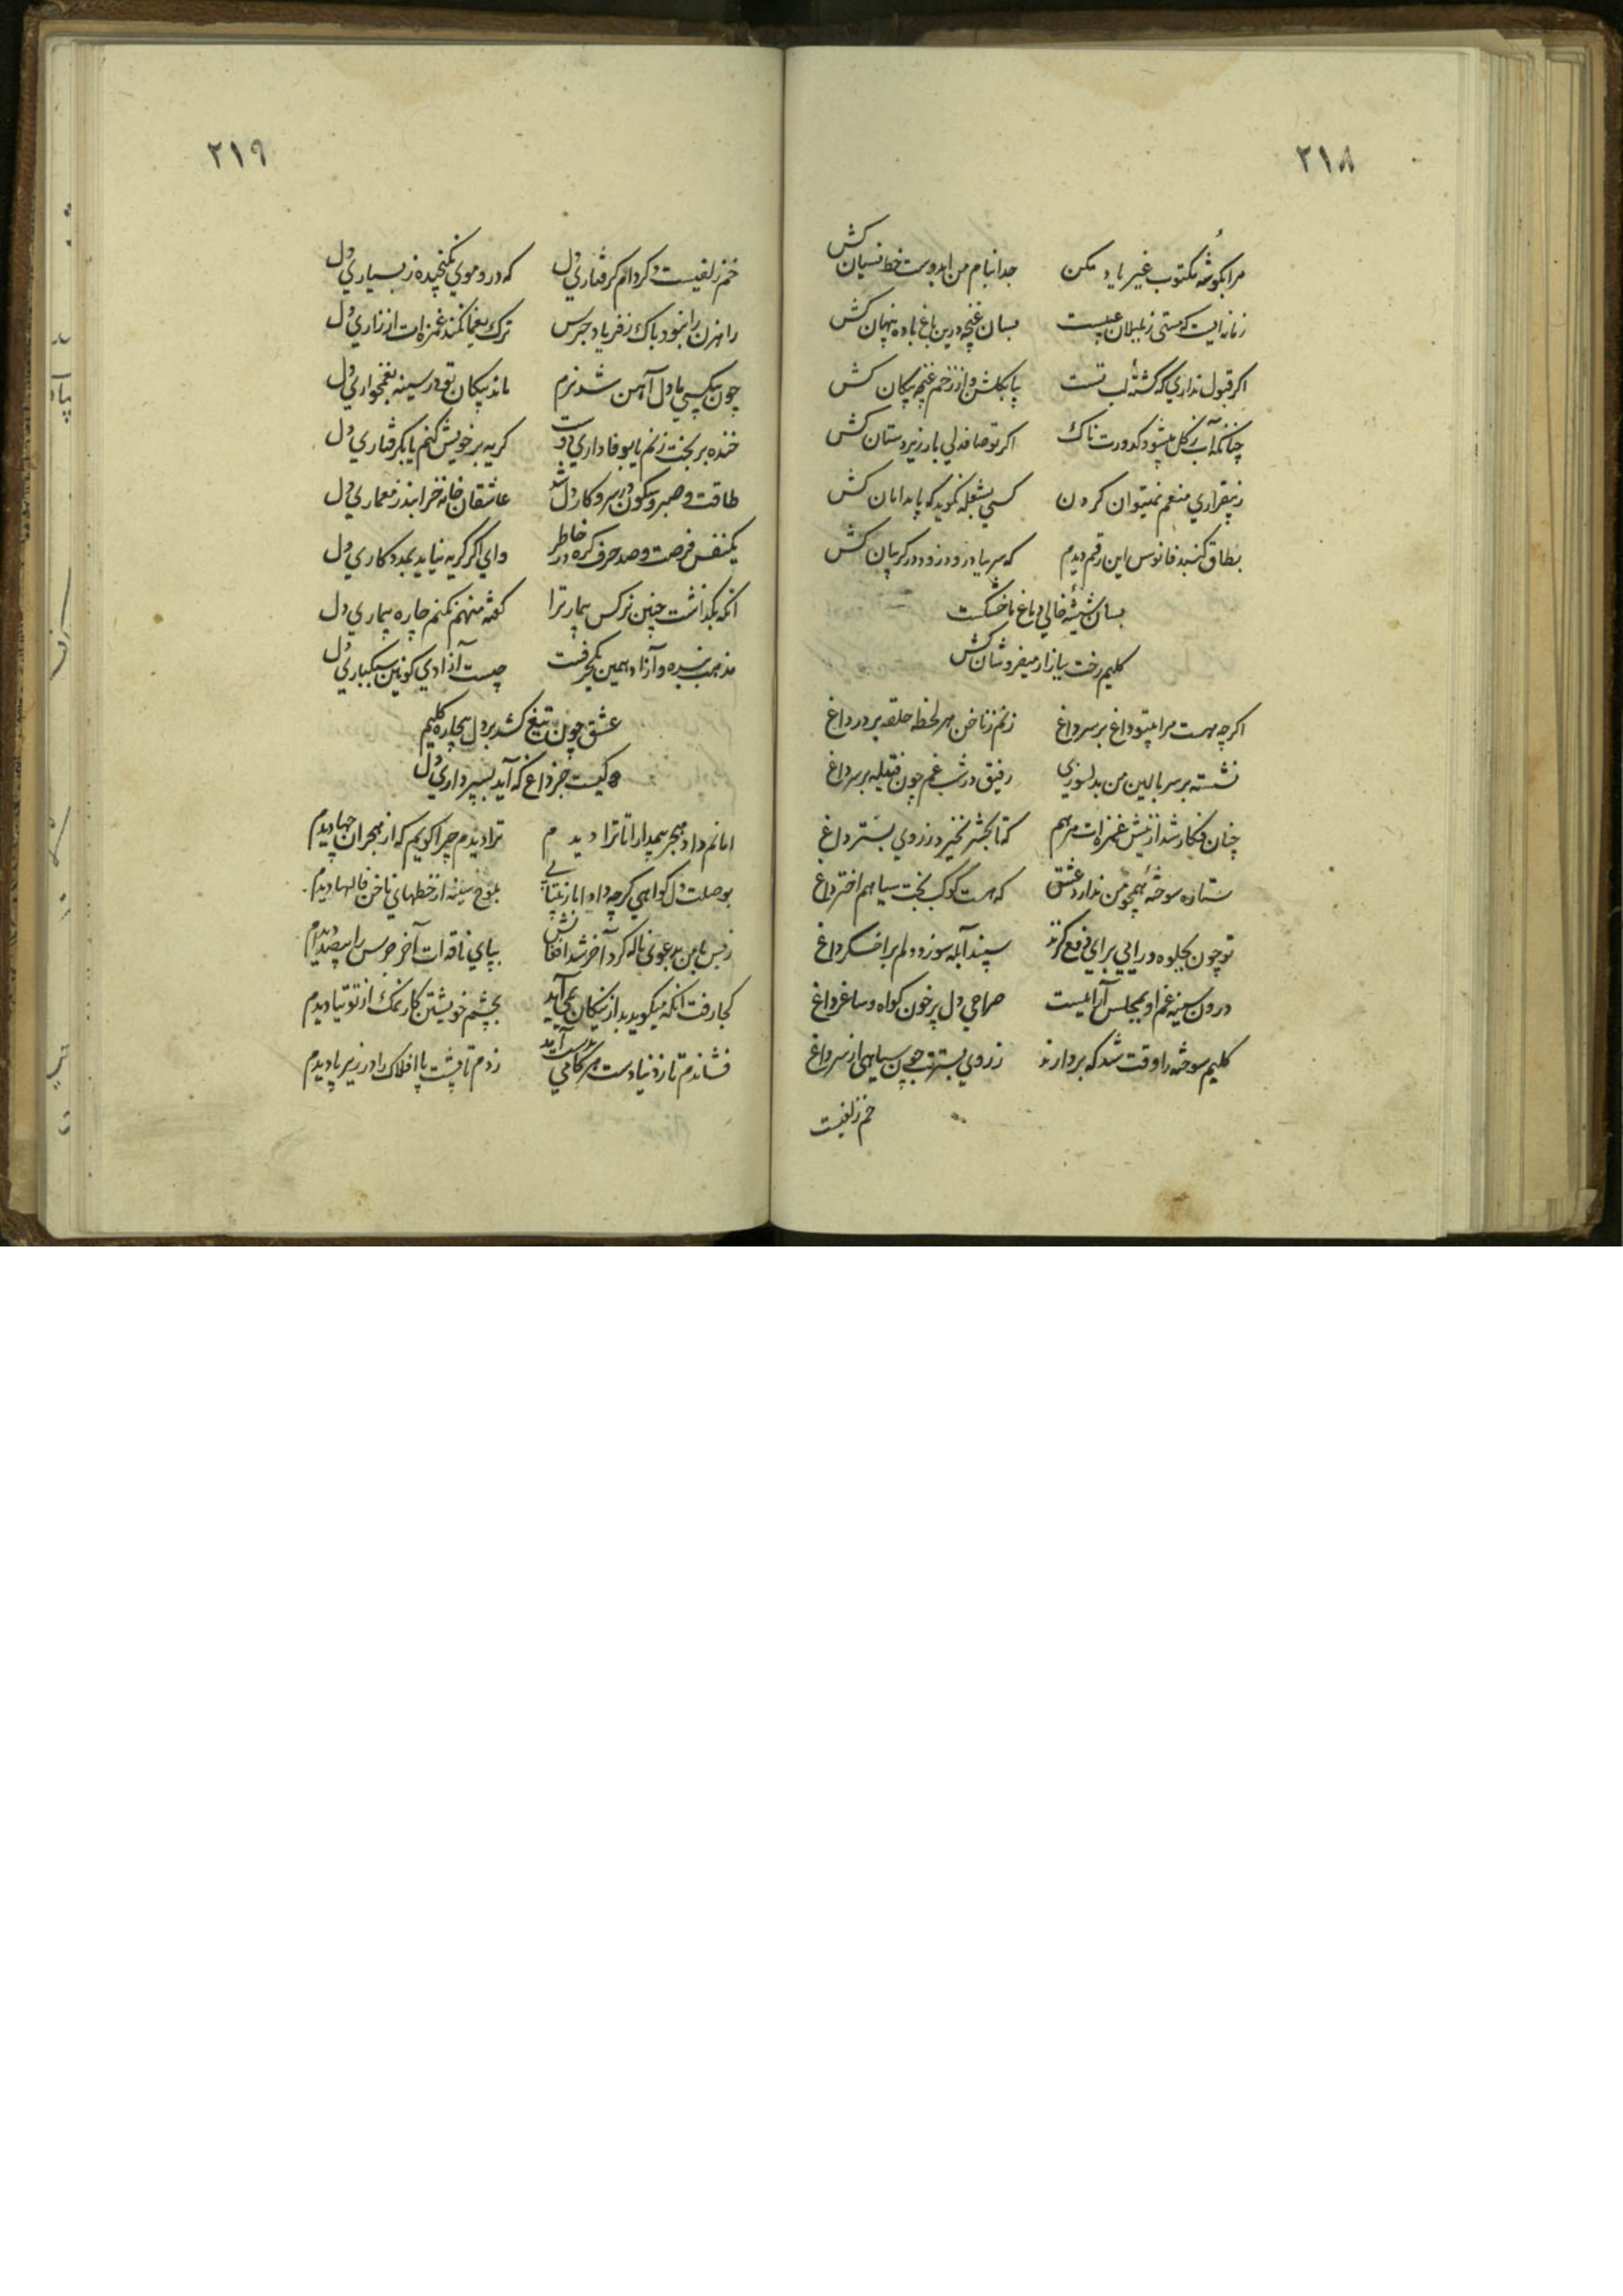 ۲۱۸
مرا بگوشه مکتوب غیر یاد مکن جدا بنام من ایدوست خط نسیان کش
زمانه ایست که مستی ز بلبلان عیبست بسان غنچه درین باغ باده پنهان کش
اگر قبول نداری که کشته لب تست پا بگلشن و از زخم غنچه پیکان کش
چنانکه آب ز گل میشود کدورت ناک اگر تو صاف دلی بار زیردستان کش
ز بیقراری منعم نمیتوان کردن کسی بشعله نگوید که پا بدامان کش
بطاق گنبد فانوس این رقم دیدم که سر بیار و زود در گریبان کش
بسان شیشه خالی دماغ ما خشکست
کلیم رخت ببازار میفروشان کش
اگرچه هست مرا بیتو داغ بر سر داغ زنم ز ناخن هر لحظه حلقه بر در داغ
نشسته بر سر بالین من بدلسوزی رفیق در شب غم چون فتیله بر سر داغ
چنان فگار شد از نیش غمزه ات مرهم که تا بحشر نخیزد ز روی بستر داغ
ستاره سوخته همچو من ندارد عشق که هست کوکب بخت سیاهم اختر داغ
تو چون بجلوه درائی برای دفع گزند سپند آبله سوزد دلم بر اخگر داغ
درون سینه غم او بمجلس آرائیست صراحی دل پر خون گواه و ساغر داغ
کلیم سوخته را وقت شد که بردارند ز روی بسترت چون سیاهی از سر داغ
خم زلفیست
۲۱۹
خم زلفیست دگر دام گرفتاری دل که درو موی نگنجیده ز بسیاری دل
راهزن را نبود باک ز فریاد جرس ترک یغما نکند غمزه ات از زاری دل
چون بیکسی با دل آهن شد نرم ماند پیکان تو در سینه بغمخواری دل
خنده بر بخت زنم یا بوفاداری دوست گریه بر خویش کنم یا بگرفتاری دل
طاقت و صبر و سکون در سر و کار دل شد عاشقان خانه خرابند ز معماری دل
یکنفس فرصت و صد حرف گره در خاطر وای اگر گریه نیاید بمددکاری دل
انکه بگذاشت چنین نرگس بیمار ترا گفته منهم نکنم چاره بیماری دل
مذهب بنده و آزاد همین یکحرفست چیست آزادی کونین سبکباری دل
عشق چون تیغ کشد بر دل بیچاره کلیم
کیست جز داغ که آید بسپرداری دل
امانم داد هجر بیمدارا تا ترا دیدم ترا دیدم چرا گویم که از هجران چها دیدم
بوصلت دل گواهی گرچه داد اما ز بیتابی بلوح سینه از خطهای ناخن فالها دیدم
ز بس با من بدعوی ناله کرد آخر شد افغانش بپای ناقه ات آخر جرس را بیصدا دیدم
کجا رفت انکه میگوید بد از نیکان نمی آید بچشم خویشتن کار نمک از توتیا دیدم
فشاندم تا ز دنیا دست هر کامی بدست آید زدم تا پشت پا افلاک را در زیر پا دیدم